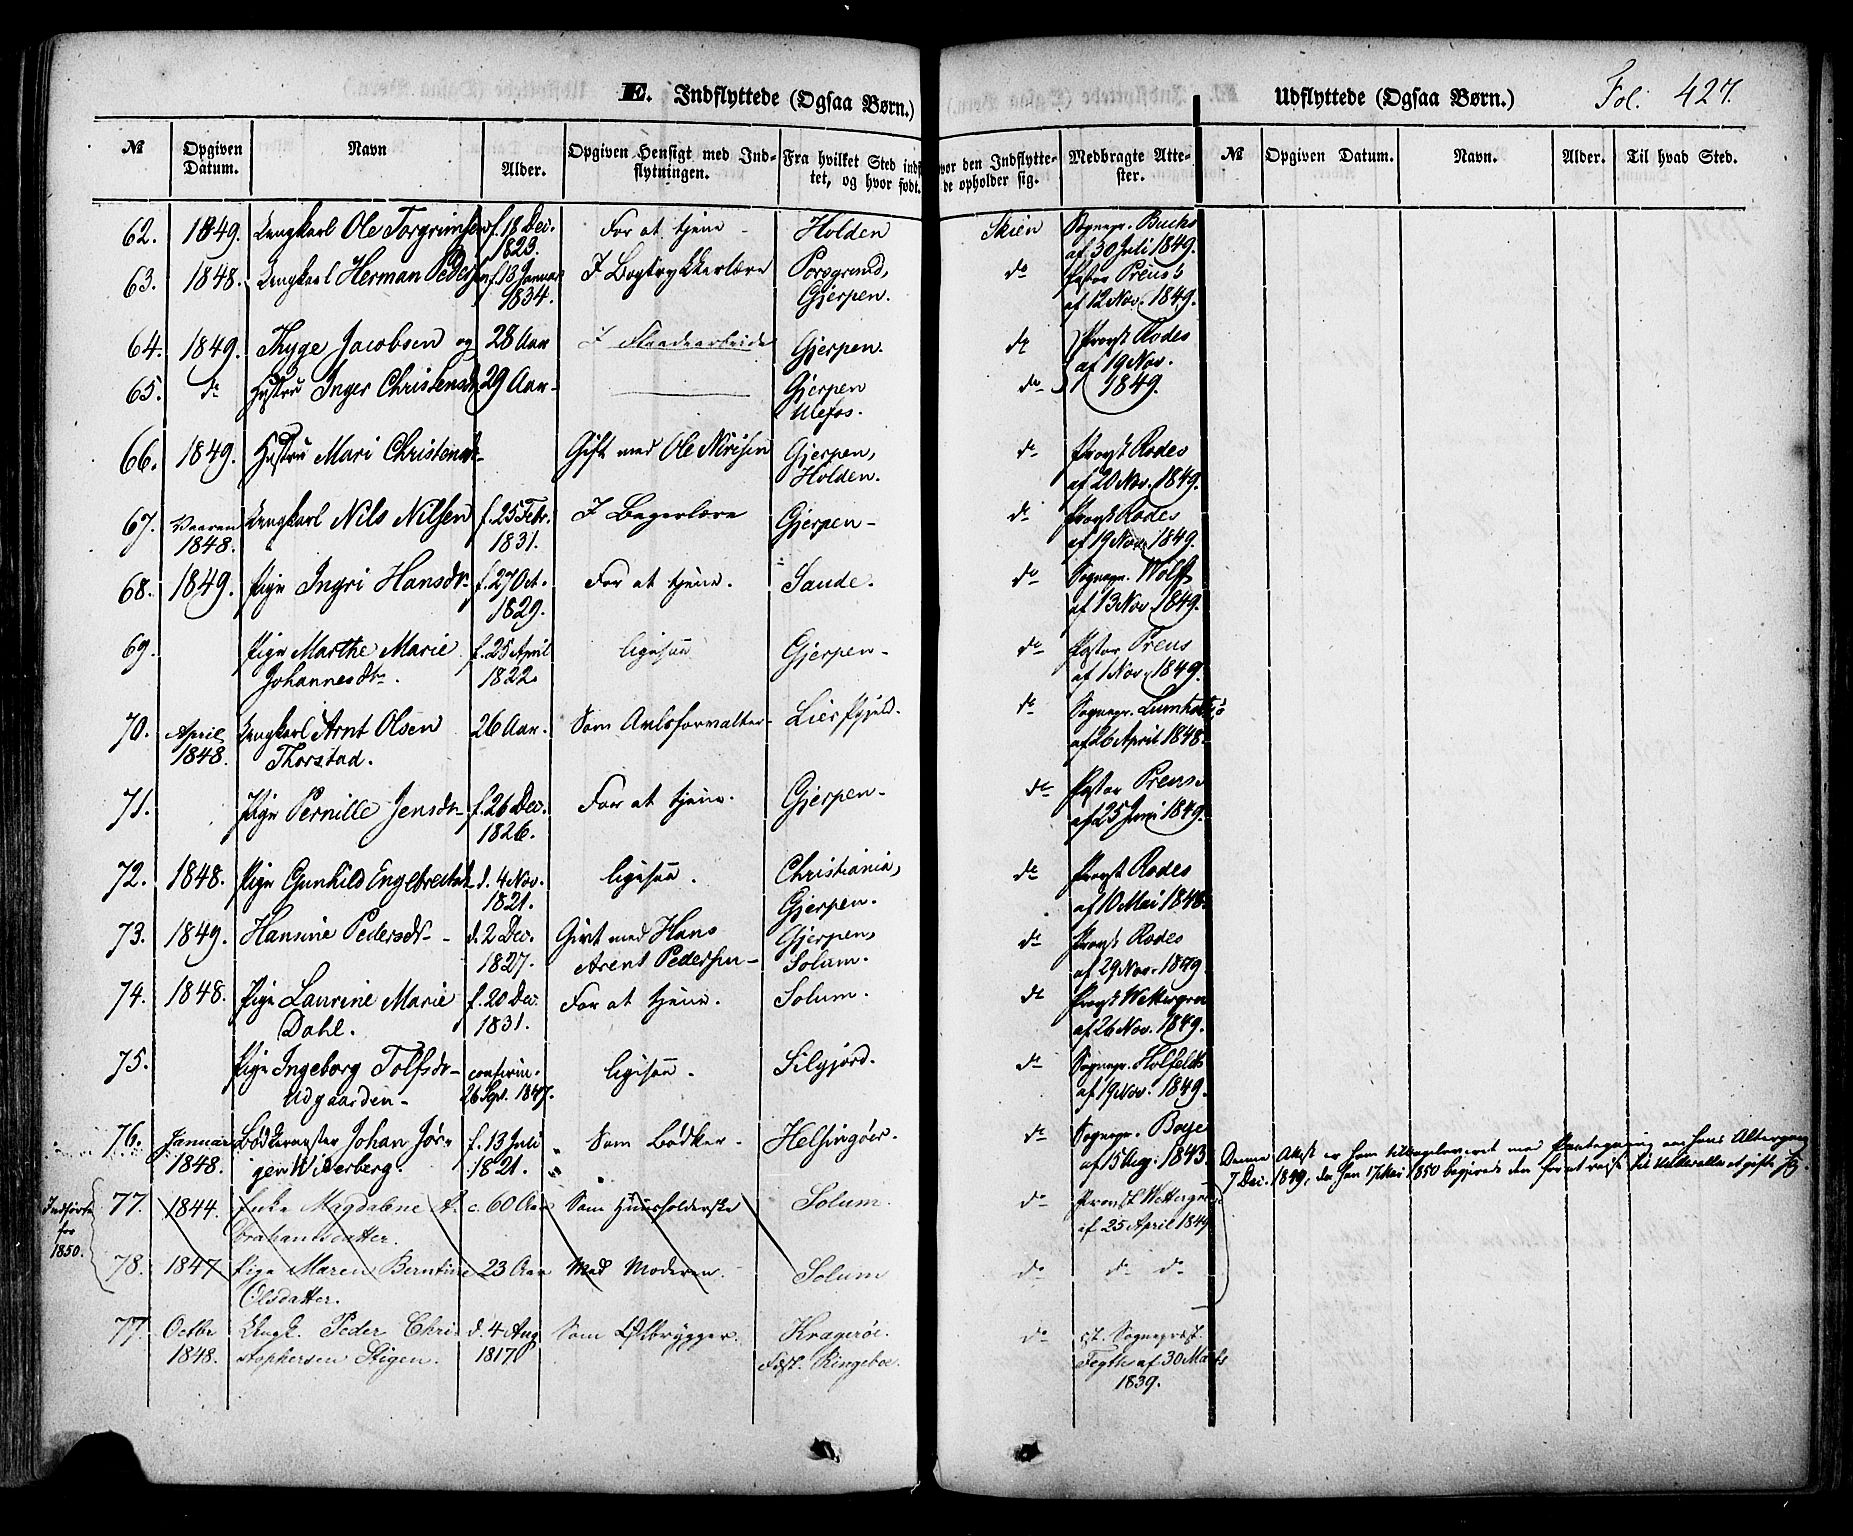 E. Indflyttede (Ogsaa Børn.)
Udflyttede (Ogsaa Børn.) Fol: 427.
№ Opgiven Datum. Navn Alder. Opgiven Hensigt med Ind-flytningen. Fra hvilket Sted indf tet, og hvor født. vor den Indflytte-de opholder sig. Medbragte Atte-ster. № Opgiven Datum. Navn. Alder. Til hvad Sted.
62. 1849. Ungkarl Ole Torgrimsen f. 18 Dec. For at tjene - Holden Skien Sognepr. Buchs
1823. af 30 Juli 1849.
63. 1848. Ungkarl Herman Peders f. 13 Janua I Bogtrykkerlære Porsgrund, do Pastor Preus's
1834. Gjerpen. af 12 Nov. 1849.
64. 1849. Thyge Jacobsen og 28 Aar I Gjerpen. do Provst Rodes
af 19 Nov.
65. do Hustru Inger Christensdr 29 Aar - Gjerpen do 1849.
Ulefos.
66. 1849. Hustru Mari Christensdr Gift med Ole Gjerpen, do Provst Rodes
Holden. af 20 Nov. 1849.
67. Vaaren Ungkarl Nils Nilsen f. 25 Febr. I Bagerlære Gjerpen - do Provst Rodes
1848. 1831. af 19 Nov. 1849.
68. 1849. Pige Ingri Hansdr f. 27 Oct. For at tjene. Saude. do Sognepr. Wolff
1829. af 13 Nov. 1849.
69. Pige Marthe Marie f. 25 April ligesaa Gjerpen - do Pastor Preus
Johannesdr. 1822. af 1 Nov. 1849.
70. April Ungkarl Arnt Olsen 26 Aar. Som Avlsforvalter - do Sognepr.
1848. Thorstad. af 26 April 1848.
71. Pige Pernille Jensdr f. 26 Dec. For at tjene. Gjerpen - do Pastor Preus
1826. af 25 1849.
72. 1848. Pige Gunhild Engebretsdr d. 4 Nov. ligesaa. Christiania, do Provst Rodes
1821. Gjerpen. af 10 Mai 1848.
73. 1849. Hansine Pedersdr - d. 2 Dec. Givt med Hans Gjerpen, do Provst Rodes
1827. Arent Pedersen - Solum. af 29 Nov. 1849.
74. 1848. Pige Laurine Marie f. 20 Dec. For at tjene. Solum. do Provst Wettergren
Dahl. 1831. af 26 Nov. 1849.
75. Pige Ingeborg Tolfsdr confirm. ligesaa. Silgjord. do Sognepr. Holfeldts
Udgaarden - 26 Sept. 1847. af 19 Nov. 1849.
76. Januar Bødkermester Johan Jør- f. 13 Juli Som Bødker - Helsingøer. do Sognepr. Boye
1848. gen Wiberberg. 1821. af 15 Aug. 1843.
Denne Attest er ham tilbageleveret med Paategning om hans Altergang
7 Dec. 1849, da han 17 Mai 1850 begjerede den for at reise til at gifte sig.
Indførte for 1850.
77. 1844. Enke Magdalene A- c. 60 Aar Som Huusholderske Solum. do Provst Wettergren
brahamsdatter. af 25 April 1849
78. 1847 Pige Maren Berntine 23 Aar Med Moderen. Solum do do do
Olsdatter.
77. Octbr Ungk. Peder Chri- d. 4 Aug Som Ølbrygger. Kragerøe. do cst. Sognepræst
1848. stophersen Stigen. 1817 Født. Ringeboe. Fegths af 30 Marts
1839.